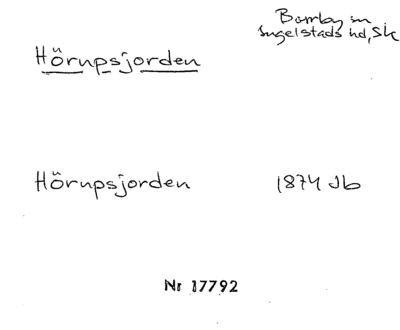 Bomby sn
Ingelstads hd, Sk
Hörupsjorden
Hörupsjorden 1874 Jb
Nr 17792